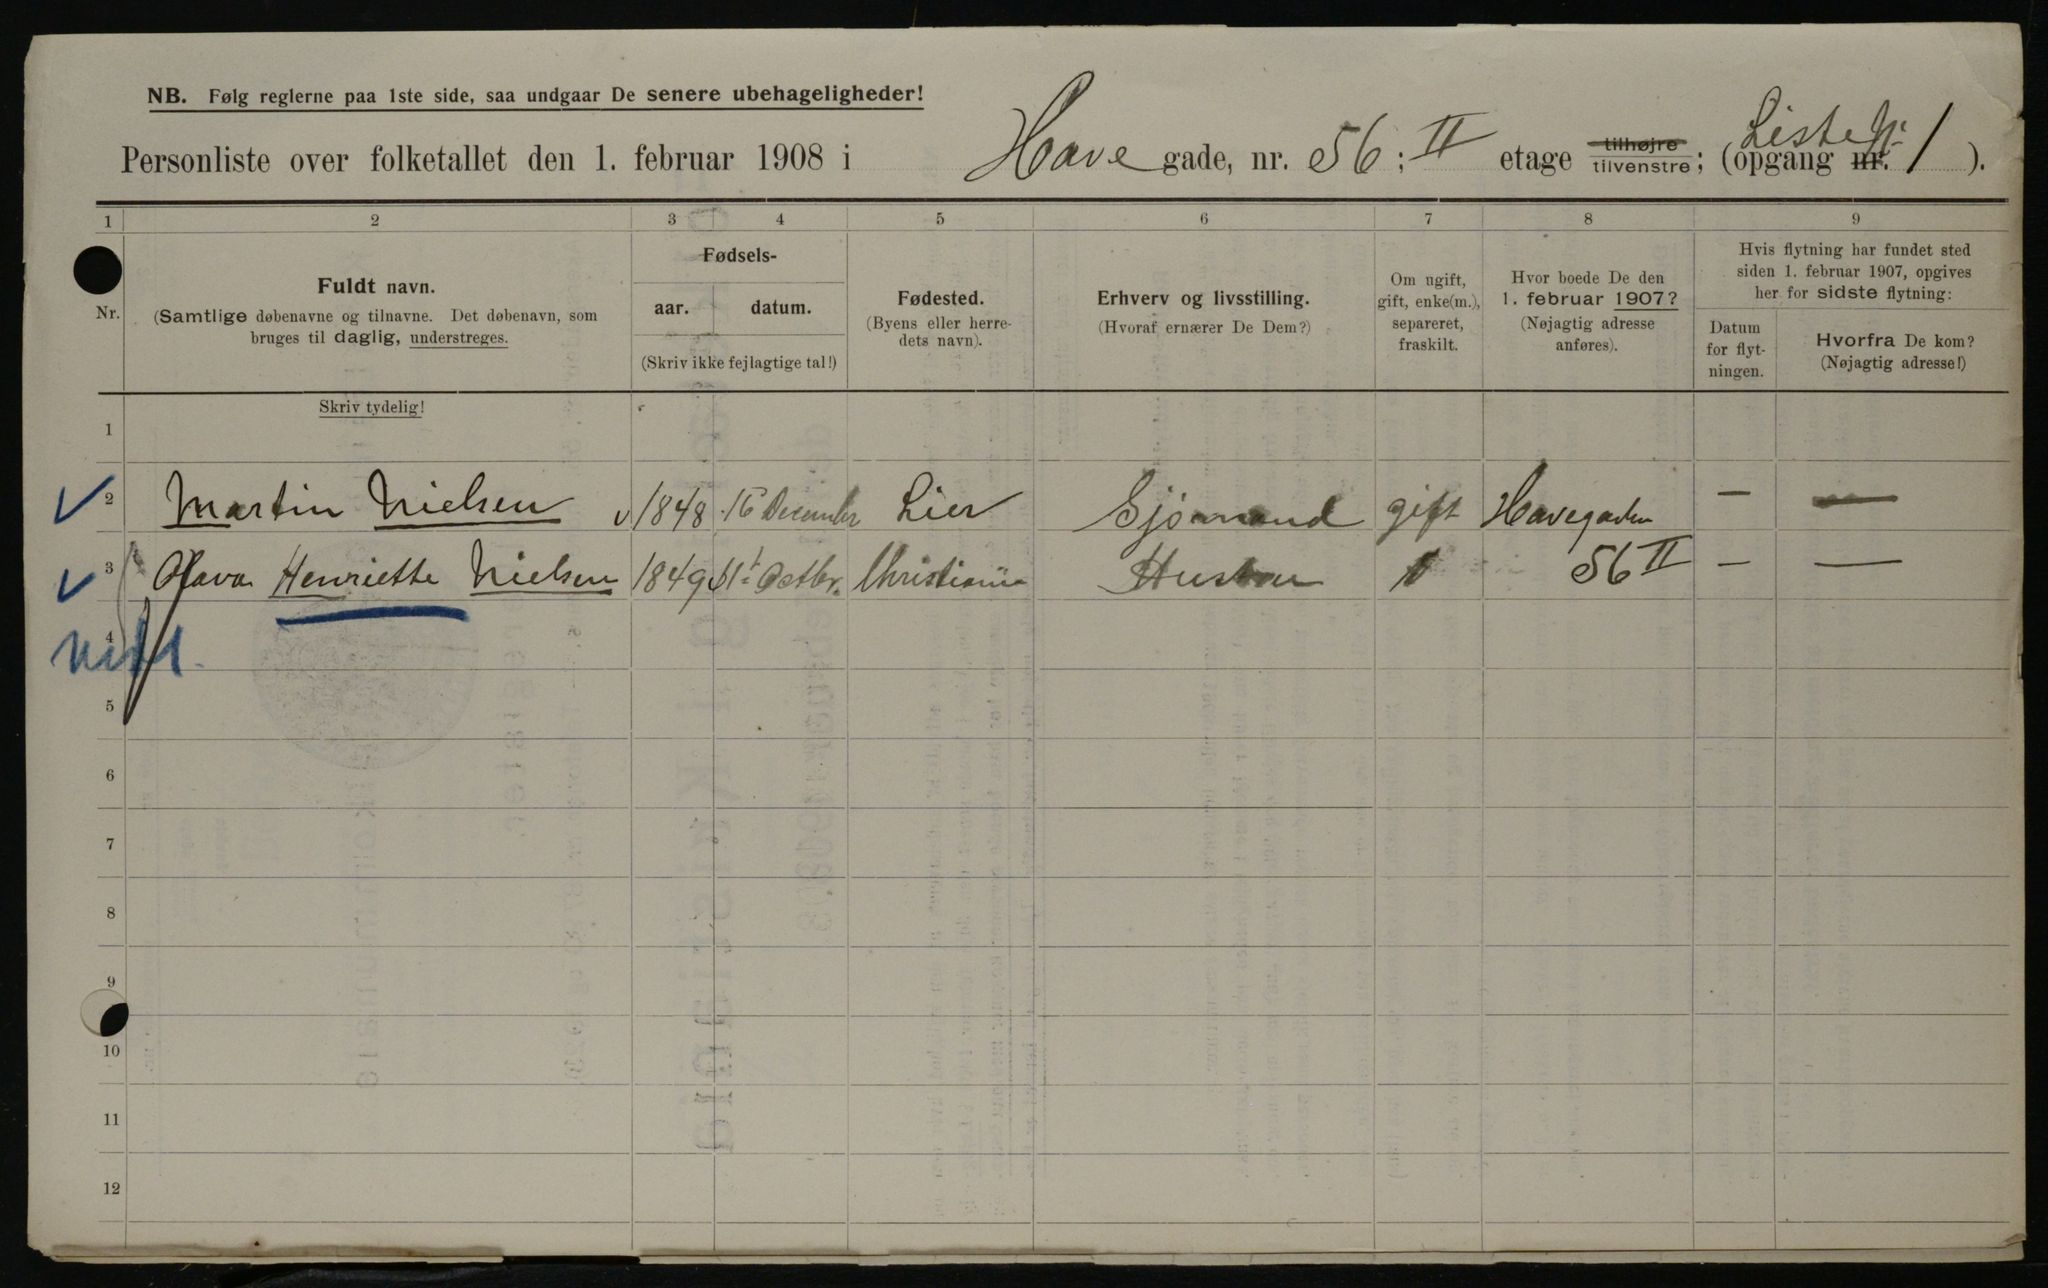 NB. Følg reglerne paa 1ste side, saa undgaar De senere ubehageligheder!
Liste Nr.
Personliste over folketallet den 1. februar 1908 i Have gade, nr. 56; II etage tilhøjre tilvenstre; (opgang nr. 1 ).
1 2 3 4 5 6 7 8 9
Nr.
Fuldt navn.
(Samtlige døbenavne og tilnavne. Det døbenavn, som
bruges til daglig, understreges.
Fødsels-
aar. datum.
(Skriv ikke fejlagtige tal!)
Fødested.
(Byens eller herre-
dets navn).
Erhverv og livsstilling.
(Hvoraf ernærer De Dem?)
Om ugift,
gift, enke(m.),
separeret,
fraskilt.
Hvor boede De den
1. februar 1907?
(Nøjagtig adresse
anføres).
Hvis flytning har fundet sted
siden 1. februar 1907, opgives
her for sidste flytning:
Datum
for flyt-
ningen.
Hvorfra De kom?
(Nøjagtig adresse!)
Skriv tydelig!
1
2 Martin Nielsen 1848 16 December Lier Sjømand gift Havegaden — —
3 Olava Henriette Nielsen 1849 Octbr. Christiania Hustru 56 II — —
4
5
6
7
8
9
10
11
12